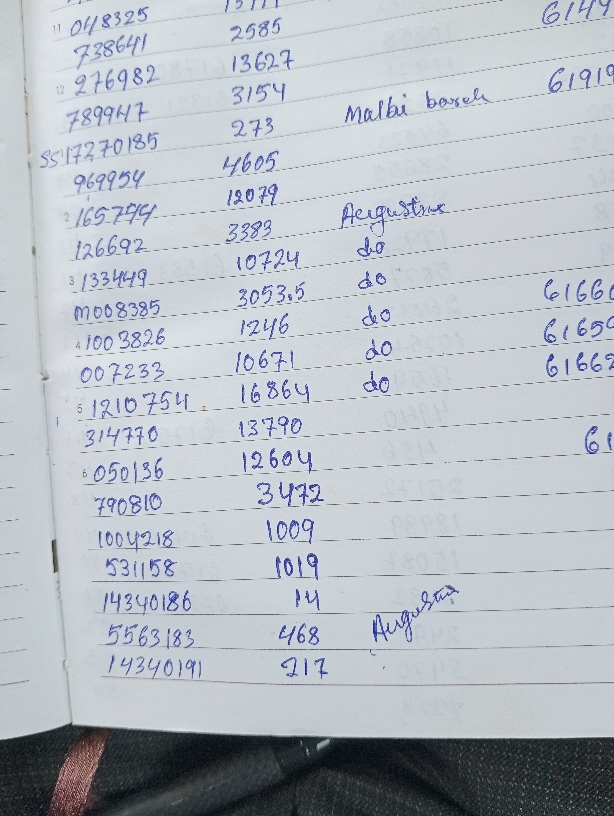 11 048325 6149
738641 2585
12 276982 13627
789947 3154 Malbi 6191
SS17270185 273
969954 4605
2 165744 12079
126692 3383 Augustine
3 133449 10724 do
M008385 3053.5 do
4 1003826 1246 do 6166
007233 10671 do 6165
5 1210754 16864 do 61662
314770 13790
6 050136 12604 61
790810 3472
1004218 1009
531158 1019
14340186 14
5563183 468 Augustin
14340191 217